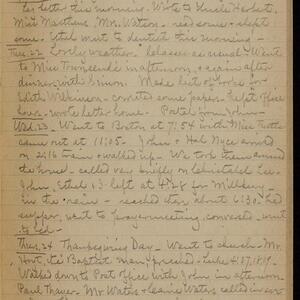 for letter this morning. Wrote to Uncle Herbert,
Miss Matthews, Mr. Watson - read some & slept
some. Ethel went to dentist this morning -
Tues. 22 Lovely weather. Classes as usual - Went
to Miss Townsend's in afternoon, & again after
dinner with Simon. Make list of books in
Edith Wilkinson - corrected some papers - kept office
hour - wrote letter home - Postal from John -
Wed. 23 Went to Boston at 7:54 with Miss Tuttle
came out at 11:05 - John & Hal Nye arrived
on 2:16 train & walked up - We took them around
the house - called very briefly on
John, Ethel & I left at 4:25 for Millbury -
in the rain - reached there about 6:30. had
supper, went to prayermeeting, conversed, went
to bed -
Thurs. 24 Thanksgiving Day - Went to church - Mr.
Hoyt, the Baptist man, preached - Luke 17:17,18,19 -
Walked down to Post Office with John in afternoon
Paul Thayer - Mr. Waters & Waters called in eve